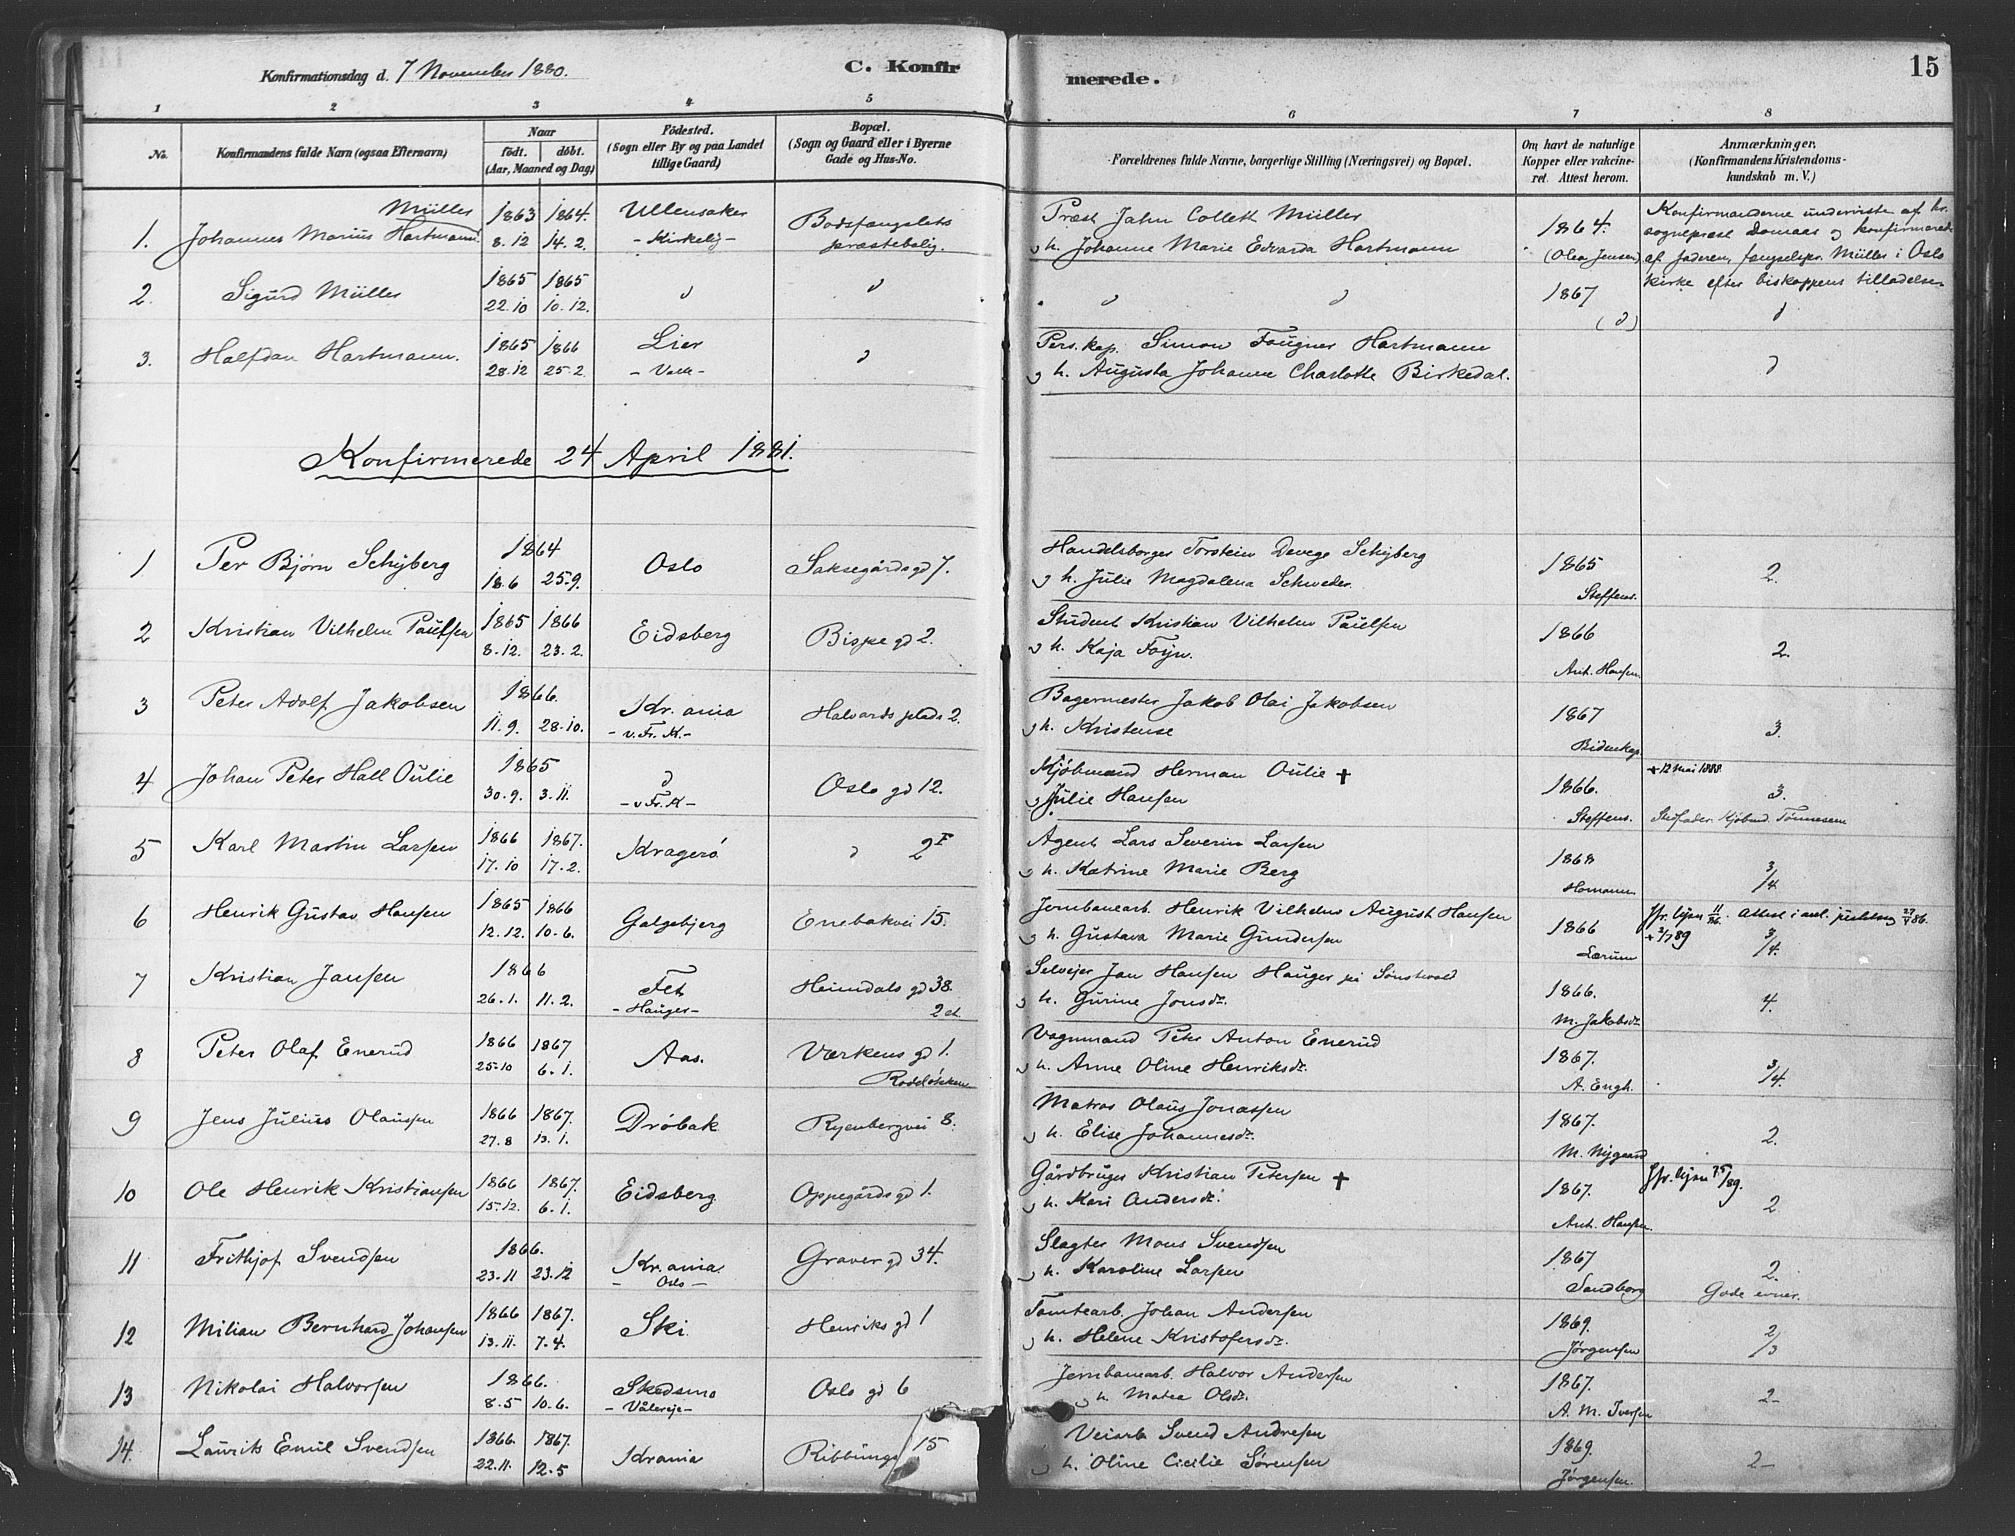 Konfirmationsdag d. 7 November 1880.
C. Konfirmerede.
15
1 2 3 4 5 6 7 8
No.
Konfirmandens fulde Navn (ogsaa Efternavn)
Naar
födt. döbt.
(Aar, Maaned og Dag)
Födested.
(Sogn eller By og paa Landet
tillige Gaard)
Bopæl.
(Sogn og Gaard eller i Byerne
Gade og Hus-No.
Forældrenes fulde Navne, borgerlige Stilling (Næringsvei) og Bopæl.
Om havt de naturlige
Kopper eller vakcine-
ret. Attest herom.
Anmærkninger.
(Konfirmandens Kristendoms-
kundskab m. V.)
Müller 1863 1864. Ullensaker Bodsfængslets Præst Jahn Collett Müller 1864. Konfirmanderne underviste af hr.
1. Johannes Marius Hartmann. 8.12 14.2. - Kirkelig - præstebolig. og h. Johanne Marie Edvarda Hartmann (Olea Jensen) sognepræst Domaas og konfirmerede
af faderen, fængselspr. Müller i Oslo
2. Sigurd Müller 1865 1865 d d d d 1867 kirke efter biskoppens tilladelse.
22.10 10.12. (d) d
3. Halfdan Hartmann. 1865 1866 Lier d Pers. kap. Simon Fougner Hartmann d
28.12 25.2. og h. Augusta Johanne Charlotte Birkedal.
Konfirmerede 24 April 1881.
1 Per Bjørn Schyberg 1864 Oslo Saksegårdsgd 7. Handelsborger Torstein Devege Schyberg 1865 2.
18.6 25.9. og h. Julie Magdalena Schweder. Steffens.
2 Kristian Vilhelm Paulsen 1865 1866 Eidsberg Bispe gd 2. Student Kristian Vilhelm Paulsen 1866 2.
8.12. 23.2. og h. Kaja Foyn. Ant. Hansen.
3 Peter Adolf Jakobsen 1866. Kr.ania Halvards plads 2. Bagermester Jakob Olai Jakobsen 1867 3.
11.9. 28.10. - v. Fr. K - og h. Kristense Bidenkap.
4 Johan Peter Hall Oulie 1865 d Oslo gd 12. Kjøbmand Herman Oulie + 1866. + 12 mai 1888. 3.
30.9. 3.11. - v Fr. K - og Julie Hansen Steffens. Stedfader: Kjøbmd Tønnesen
5 Karl Martin Larsen 1866 1867. Kragerö d 2 F Agent Lars Severin Larsen 1868 3/4.
17.10 17.2. og h. Katrine Marie Berg Homann.
6 Henrik Gustav Hansen 1865 1866 Galgebjerg Enebakvei 15. Jernbanearb. Henrik Vilhelm August Hansen 1866
12.12. 10.6. og h. Gustava Marie Gundersen Lærum 3/4.
7 Kristian Jansen 1866 Fet Heimdals gd 38. Selveier Jan Hansen Hauger 1866. 4.
26.1. 11.2. - Hauger - 2 et. og h. Gurine Jonsdr. M. Jakobsdr.
8 Peter Olaf Enerud 1866 1867 Aas. Værkens gd 1. Vognmand Peter Anton Enerud 1867. 3/4.
25.10 6.1. Rodeløkken og h. Anne Oline Henriksdr. A. Engh.
9 Jens Julius Olaussen 1866 1867. Dröbak Ryenbergvei 8. Matros Olaus Jonassen 1867. 2.
27.8 13.1. og h. Elise Johannesdr. M. Nygaard
10 Ole Henrik Kristiansen 1866 1867. Eidsberg Oppegårdsgd 1. Gårdbruger Kristian Petersen + 1867. 2
15.12. 6.1. og h. Kari Andersdr. Ant. Hansen.
11 Frithjof Svendsen 1866. Kr.ania Graver gd 34. Slagter Mons Svendsen 1867 2.
23.11 23.12 - Oslo - og h. Karoline Larsen Sandborg Gode evner.
12 Milian Bernhard Johansen 1866 1867. Ski Henriks gd 1 Tomtearb. Johan Andersen 1869. 2/3
13.11. 7.4. og h. Helene Kristofersdr. Jørgensen
13 Nikolai Halvorsen 1866. Skedsmo Oslo gd 6 Jernbanearb. Halvor Andersen 1867. 2-
8.5 10.6. - Vålereje - og h. Matea Olsdr. A. M. Iversen
14. Laurits Emil Svendsen 1866. 1867. Krania Ribbungs 15 Veiarb Svend Andresen 1869. 2-
22.11. 12.5 og h. Oline Cicilie Sørensen Jørgensen.